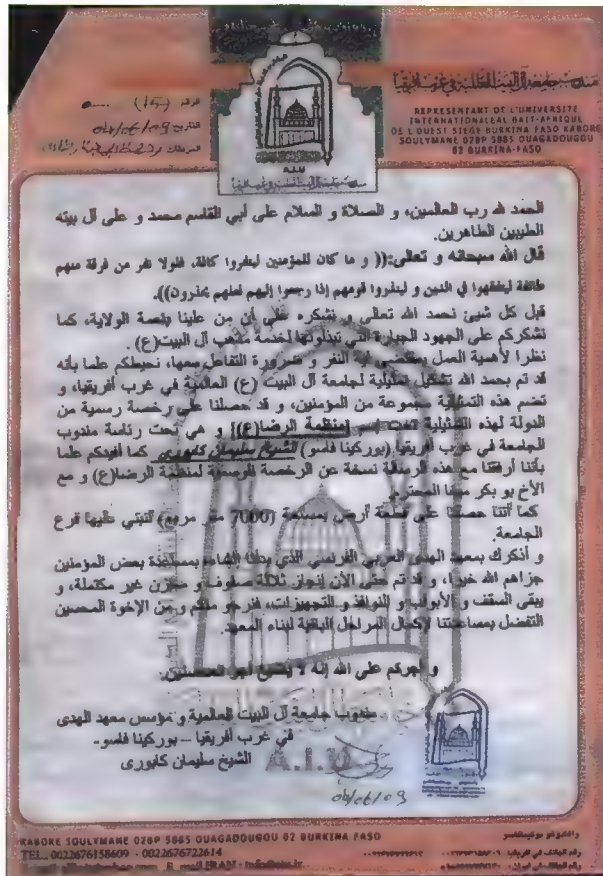 مندوب جامعة آل البيت العالمية في غرب أفريقيا
REPRESENTANT DE L'UNIVERSITE
INTERNATIONALEAL BAIT-AFRIQUE
DE L'OUEST SIEGE BURKINA FASO KABORE
SOULYMANE 02BP 5885 OUAGADOUGOU
02 BURKINA-FASO
الرقم (15)
التاريخ 04/06/09
المرفقات
مندوب جامعة آل البيت العالمية في غرب أفريقيا
الحمد لله رب العالمين، و الصلاة و السلام على أبي القاسم محمد و على آل بيته
الطيبين الطاهرين.
قال الله سبحانه و تعالى:(( و ما كان للمؤمنين لينفروا كافة، فلولا نفر من فرقة منهم
طائفة ليتفقهوا في الدين و لينذروا قومهم إذا رجعوا إليهم لعلهم يحذرون)).
قبل كل شيئ نحمد الله تعالى و نشكره على أن من علينا بنعمة الولاية، كما
نشكركم على الجهود الجبارة التي تبذلونها لخدمة مذهب آل البيت(ع) .
نظرا لأهمية العمل بمقتضى آية النفر و ضرورة التفاعل معها، نحيطكم علما بأنه
قد تم بحمد الله تشكيل تمثيلية لجامعة آل البيت (ع) العالمية في غرب أفريقيا، و
تضم هذه التمثيلية مجموعة من المؤمنين، و قد حصلنا على رخصة رسمية من
الدولة لهذه التمثيلية تحت إسم [منظمة الرضا(ع)] و هي تحت رئاسة مندوب
الجامعة في غرب أفريقيا (بوركينا فاسو) الشيخ سليمان كابوري كما أفيدكم علما
بأننا أرفقنا مع هذه الرسالة نسخة عن الرخصة الرسمية لمنظمة الرضا(ع) و مع
الأخ بو بكر ميغا المحترم.
كما أننا حصلنا على قطعة أرض بمساحة (7000 متر مربع) لنبتي عليها فرع
الجامعة.
و أذكرك بمعهد الهدى العربي الفرنسي الذي بدأنا إنشاءه بمساعدة بعض المؤمنين
جزاهم الله خيرا، و قد تم حتى الآن إنجاز ثلاثة صفوف و مخزن غير مكتملة، و
يبقى السقف و الأبواب و النوافذ و التجهيزات، فنرجو منكم و من الإخوة المحسنين
التفضل بمساعدتنا لإكمال المراحل الباقية لبناء المعهد.
و أجركم على الله إنه لا يضيع أجر المحسنين.
مندوب جامعة آل البيت العالمية و مؤسس معهد الهدى
في غرب أفريقيا – بوركينا فاسو-
الشيخ سليمان كابورى
A.I.U
04/06/09
KABORE SOULYMANE 02BP 5885 OUAGADOUGOU 02 BURKINA FASO
TEL. 0022676158609 - 0022676722614
واغادوغو بوركينافاسو